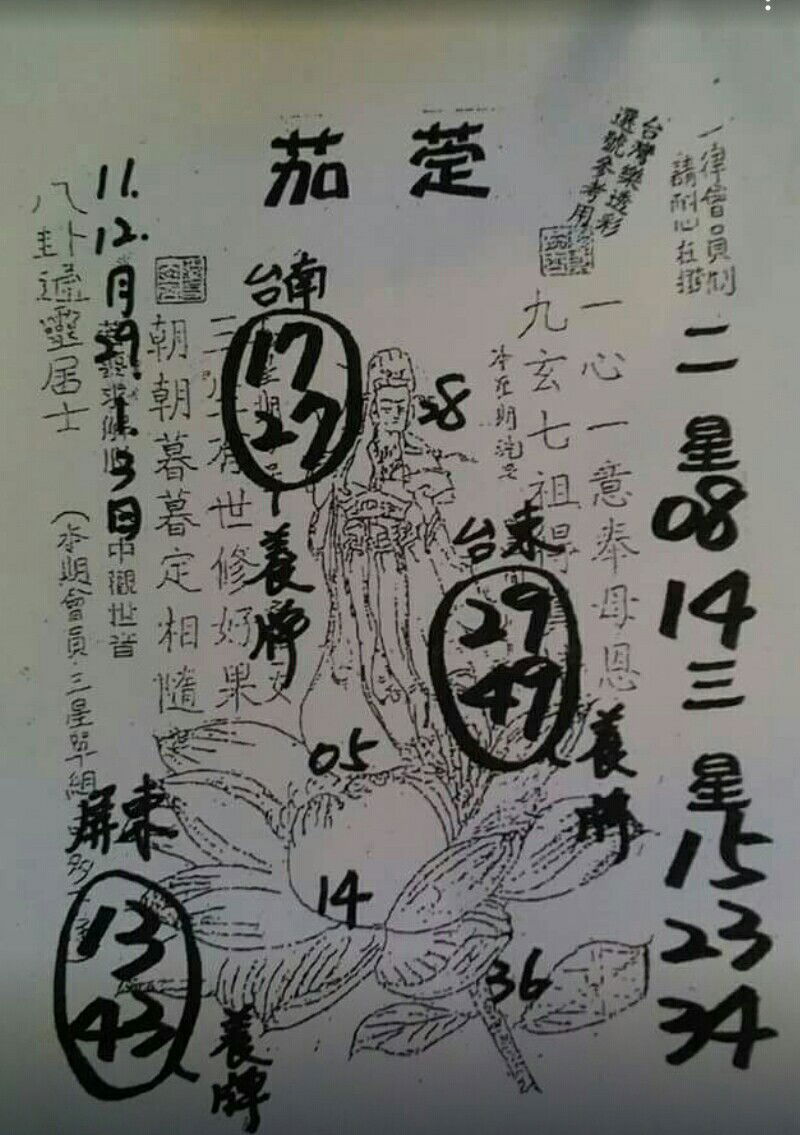 茄萣
台灣樂透彩
選號參考用
一律會員制
請耐心在
二星
08
14
三星
15
23
34
一心一意奉母恩
九玄七祖得
台南
17
27
養牌
28
台東
29
49
養牌
05
14
36
世修好果
朝朝暮暮定相隨
11.
12.
月
29.
1.
3
日
中觀世音
八卦通靈居士
會員三星單組
屏東
13
43
養牌